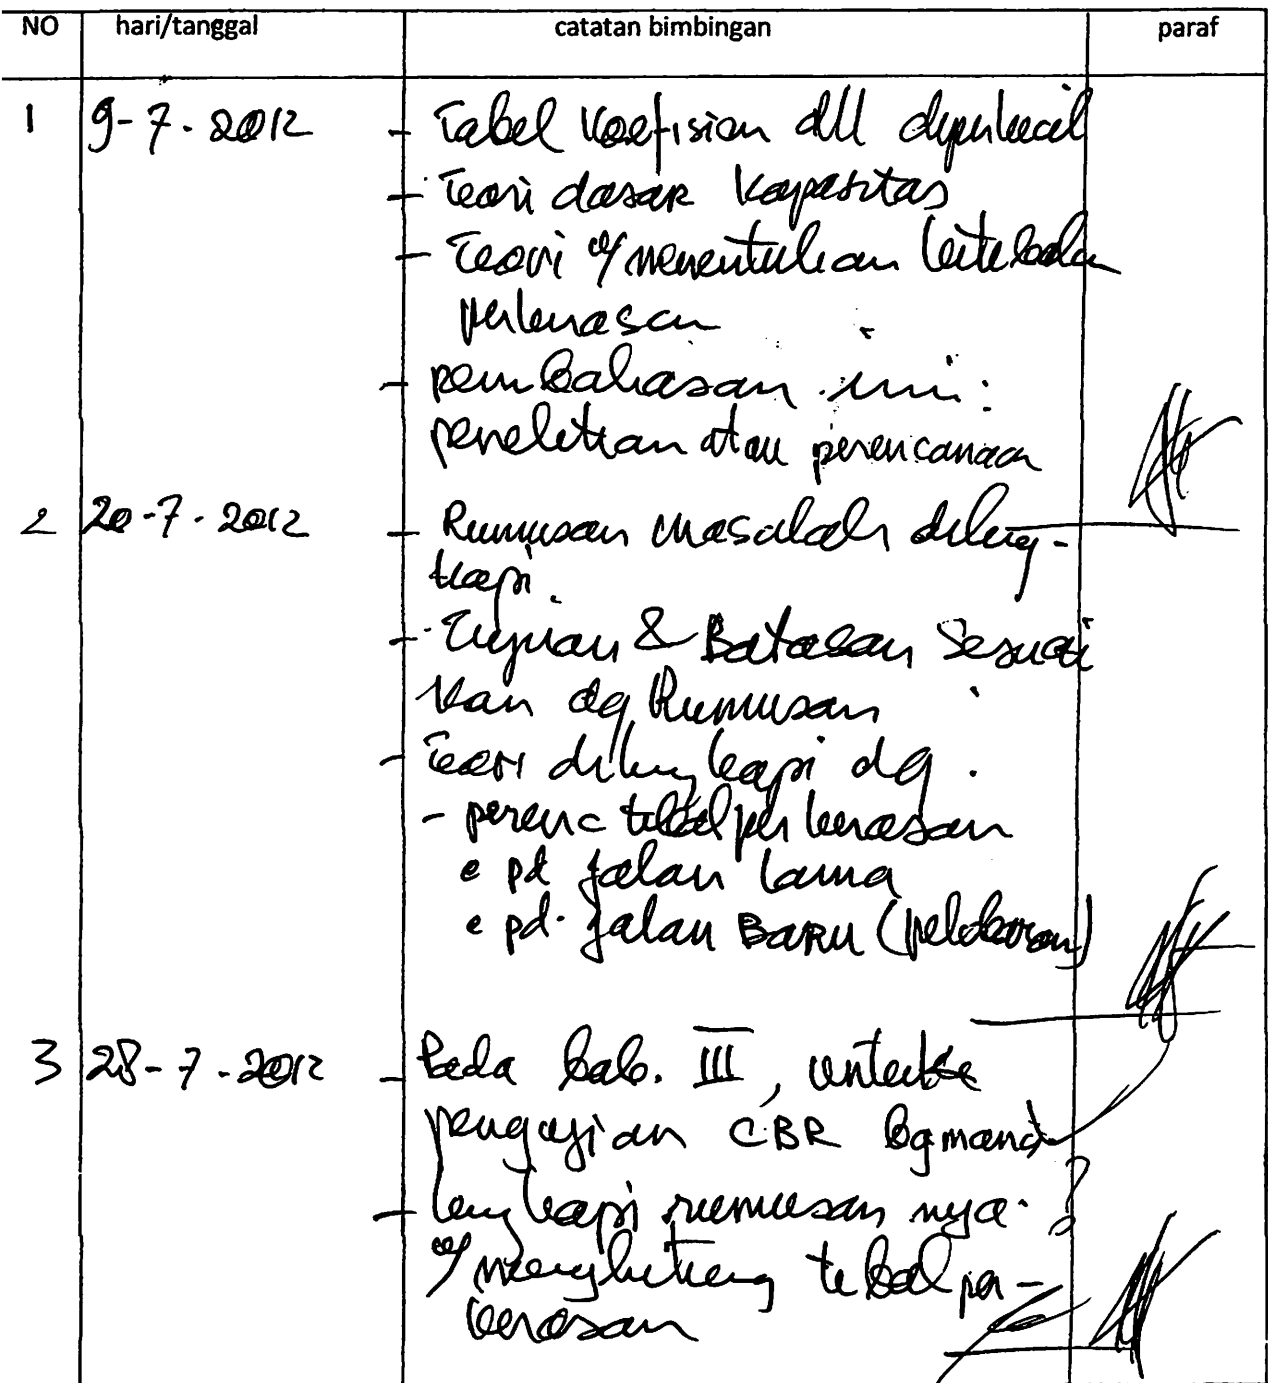 NO hari/tanggal catatan bimbingan paraf
1 9-7-2012 - Tabel Koefisian dll diperkecil
- Teori dasar Kapasitas
- Teori u/ menentukan ketebalan
perkerasan
- pembahasan ini:
penelitian atau perencanaan
2 20-7-2012 - Rumusan masalah dileng-
kapi.
- Tujuan & Batasan Sesuai
kan dg Rumusan
- Teori dilengkapi dg.
- perenc tebal perkerasan
• pd jalan lama
• pd. jalan BARU (pelebaran)
3 28-7-2012 - Pada bab. III, untuk
pengujian CBR bgmana
- lengkapi rumusan nya. ?
u/ menghitung tebal per-
kerasan